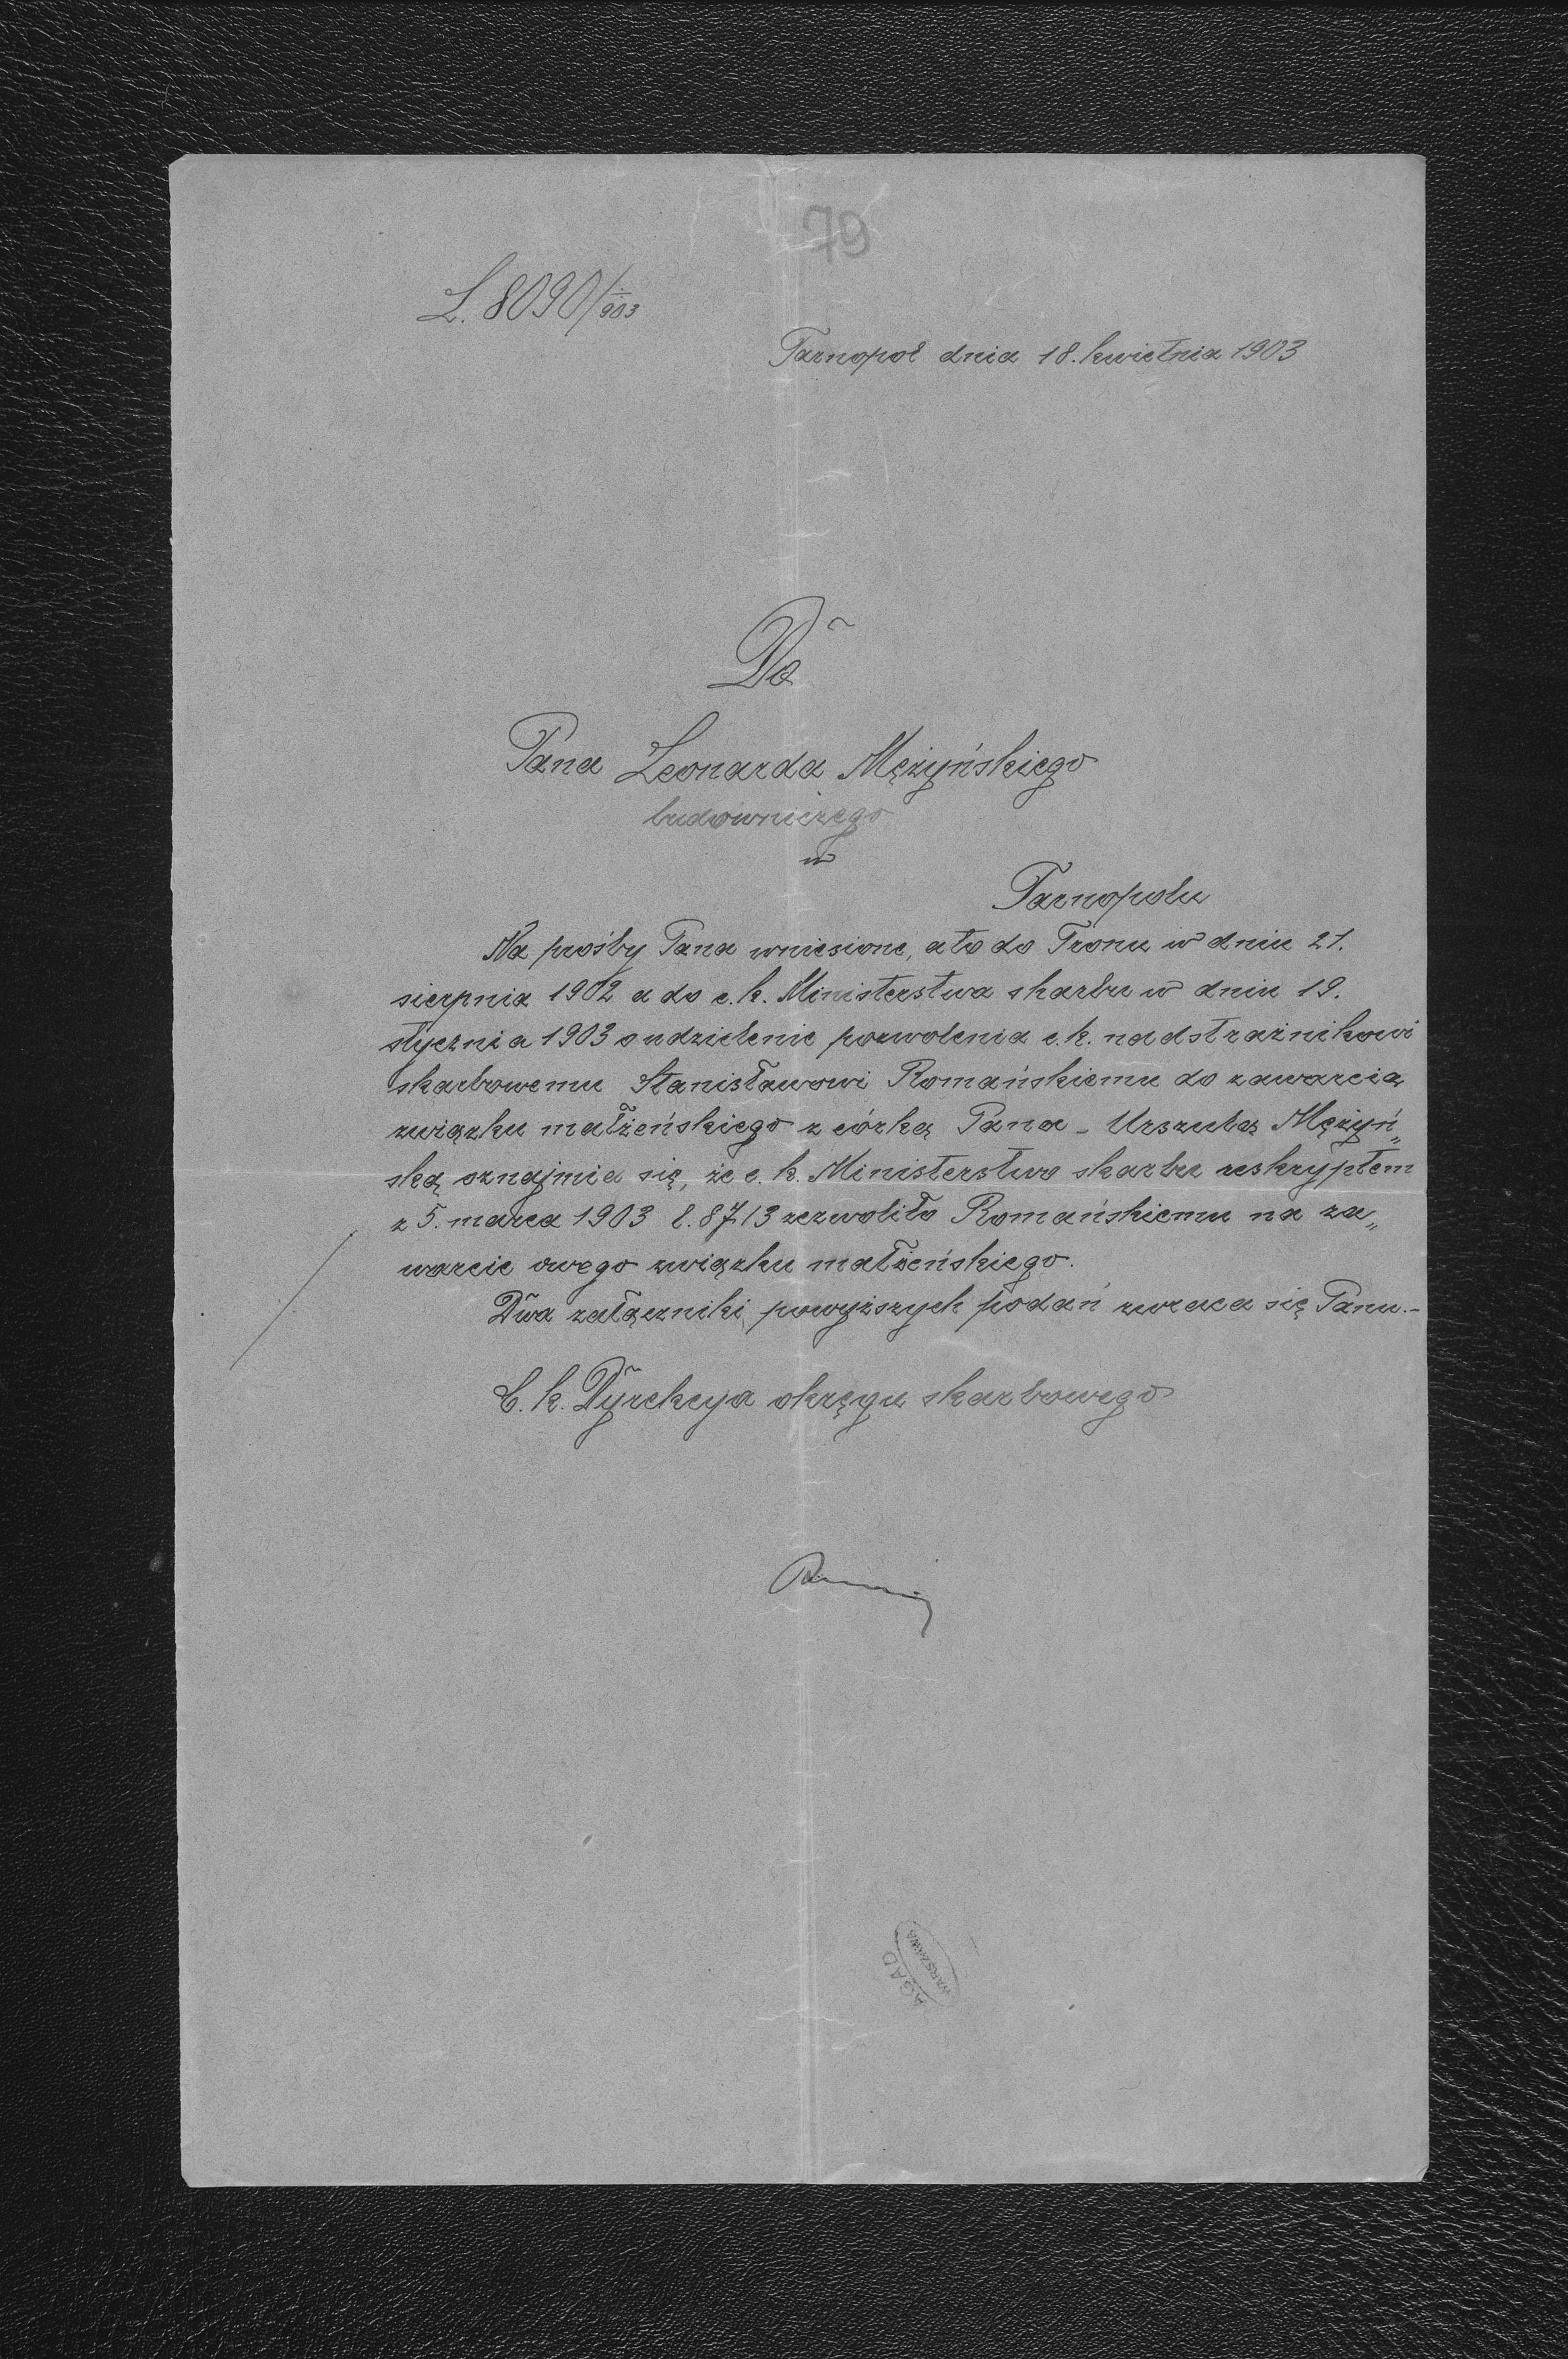 79
L. 8090/903
Tarnopol dnia 18. kwietnia 1903
Do
Pana Leonarda Mężyńskiego
budowniczego
w
Tarnopolu
Na prośby Pana wniesione, a to do Tronu w dniu 21.
sierpnia 1902 a do c. k. Ministerstwa skarbu w dniu 19.
stycznia 1903 o udzielenie pozwolenia c. k. nadstrażnikowi
skarbowemu Stanisławowi Romańskiemu do zawarcia
związku małżeńskiego z córką Pana - Urszulą Mężyń„
ską oznajmia się, że c. k. Ministerstwo skarbu reskryptem
z 5. marca 1903 l. 8713 zezwoliło Romańskiemu na za„
warcie owego związku małżeńskiego.
Dwa załączniki powyższych podań zwraca się Panu.-
C. k. Dyrekcya okręgu skarbowego
AGAD
WARSZAWA